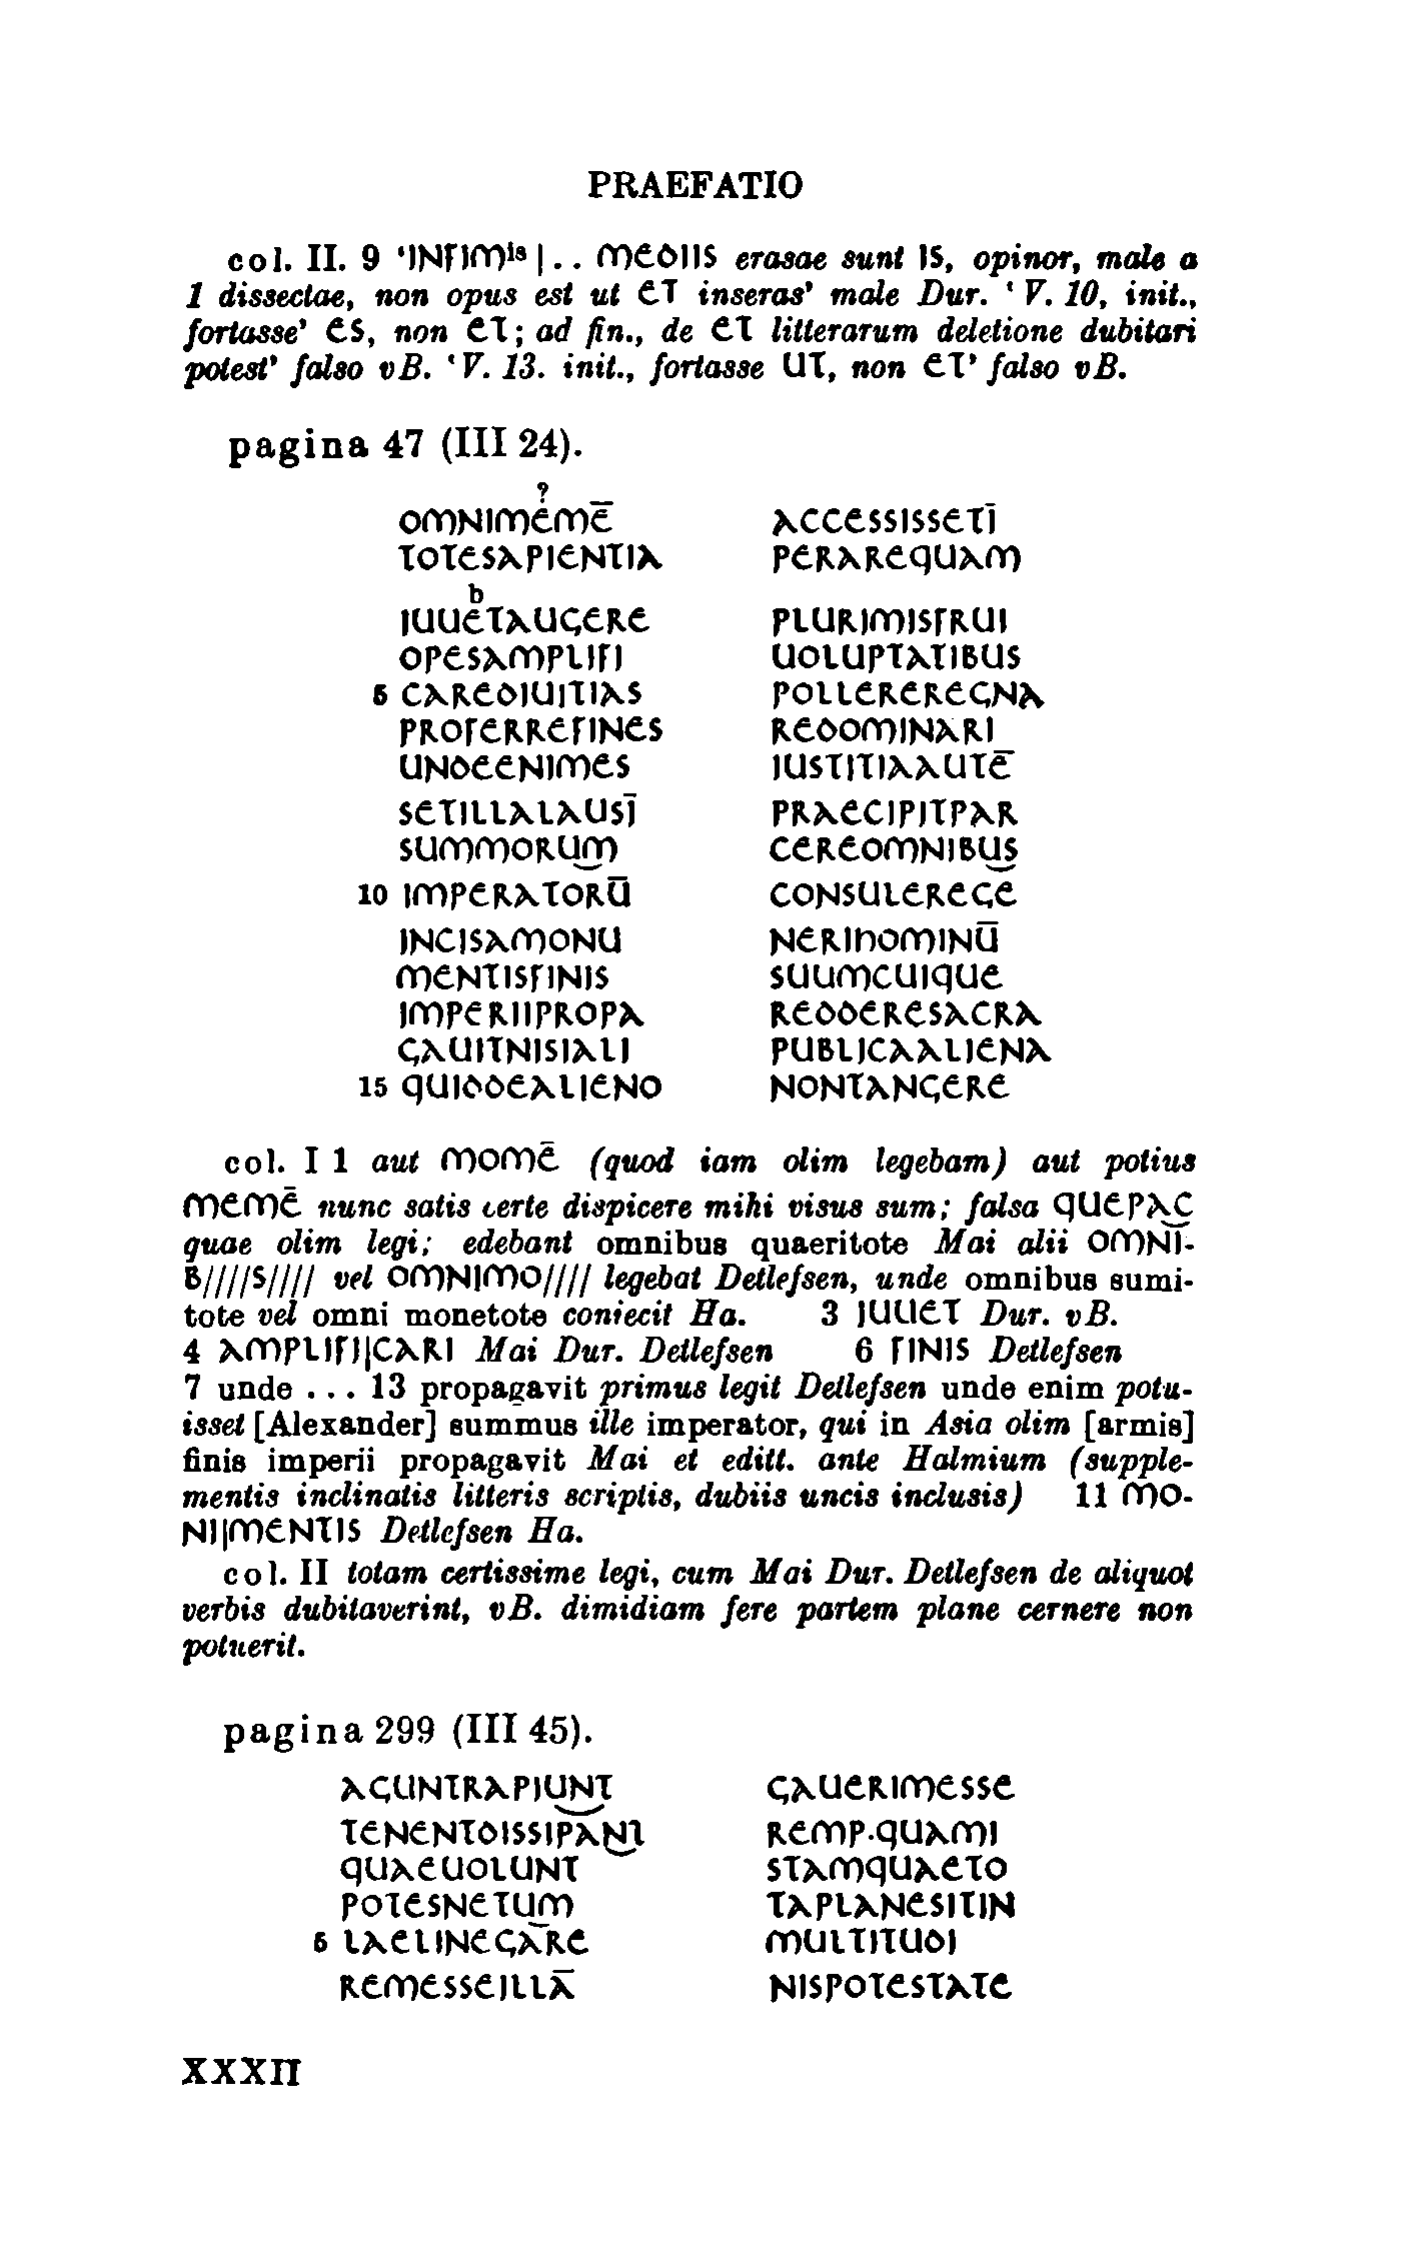 PRAEFATIO
col. II. 9 ‘INFIMis | . . MEDIIS erasae sunt IS, opinor, male a
1 dissectae, non opus est ut ET inseras’ male Dur. ‘ V. 10, init.,
fortasse’ ES, non ET; ad fin., de ET litterarum deletione dubitari
potest’ falso vB. ‘V. 13. init., fortasse UT, non ET’ falso vB.
pagina 47 (III 24).
?
OMNIMEMĒ ACCESSISSETĪ
TOTESAPIENTIA PERAREQUAM
b
IUUETAUGERE PLURIMISFRUI
OPESAMPLIFI UOLUPTATIBUS
5 CAREDIUITIAS POLLEREREGNA
PROFERREFINES REDOMINARI
UNDEENIMES IUSTITIAAUTĒ
SETILLALAUSĪ PRAECIPITPAR
SUMMORUM CEREOMNIBUS
10 IMPERATORŪ CONSULEREGE
INCISAMONU NERIhOMINŪ
MENTISFINIS SUUMCUIQUE
IMPERIIPROPA REDDERESACRA
GAUITNISIALI PUBLICAALIENA
15 QUIDDEALIENO NONTANGERE
col. I 1 aut MOMĒ (quod iam olim legebam) aut potius
MEMĒ nunc satis certe dispicere mihi visus sum; falsa QUEPAC
quae olim legi; edebant omnibus quaeritote Mai alii OMNI-
B////S//// vel OMNIMO//// legebat Detlefsen, unde omnibus sumi-
tote vel omni monetote coniecit Ha. 3 IUUET Dur. vB.
4 AMPLIFI|CARI Mai Dur. Detlefsen 6 FINIS Detlefsen
7 unde . . . 13 propagavit primus legit Detlefsen unde enim potu-
isset [Alexander] summus ille imperator, qui in Asia olim [armis]
finis imperii propagavit Mai et editt. ante Halmium (supple-
mentis inclinatis litteris scriptis, dubiis uncis inclusis) 11 MO-
NI|MENTIS Detlefsen Ha.
col. II totam certissime legi, cum Mai Dur. Detlefsen de aliquot
verbis dubitaverint, vB. dimidiam fere partem plane cernere non
potuerit.
pagina 299 (III 45).
AGUNTRAPIUNT GAUERIMESSE
TENENTDISSIPANT REMP·QUAMI
QUAEUOLUNT STAMQUAETO
POTESNETUM TAPLANESITIN
5 LAELINEGARE MULTITUDI
REMESSEILLĀ NISPOTESTATE
XXXII